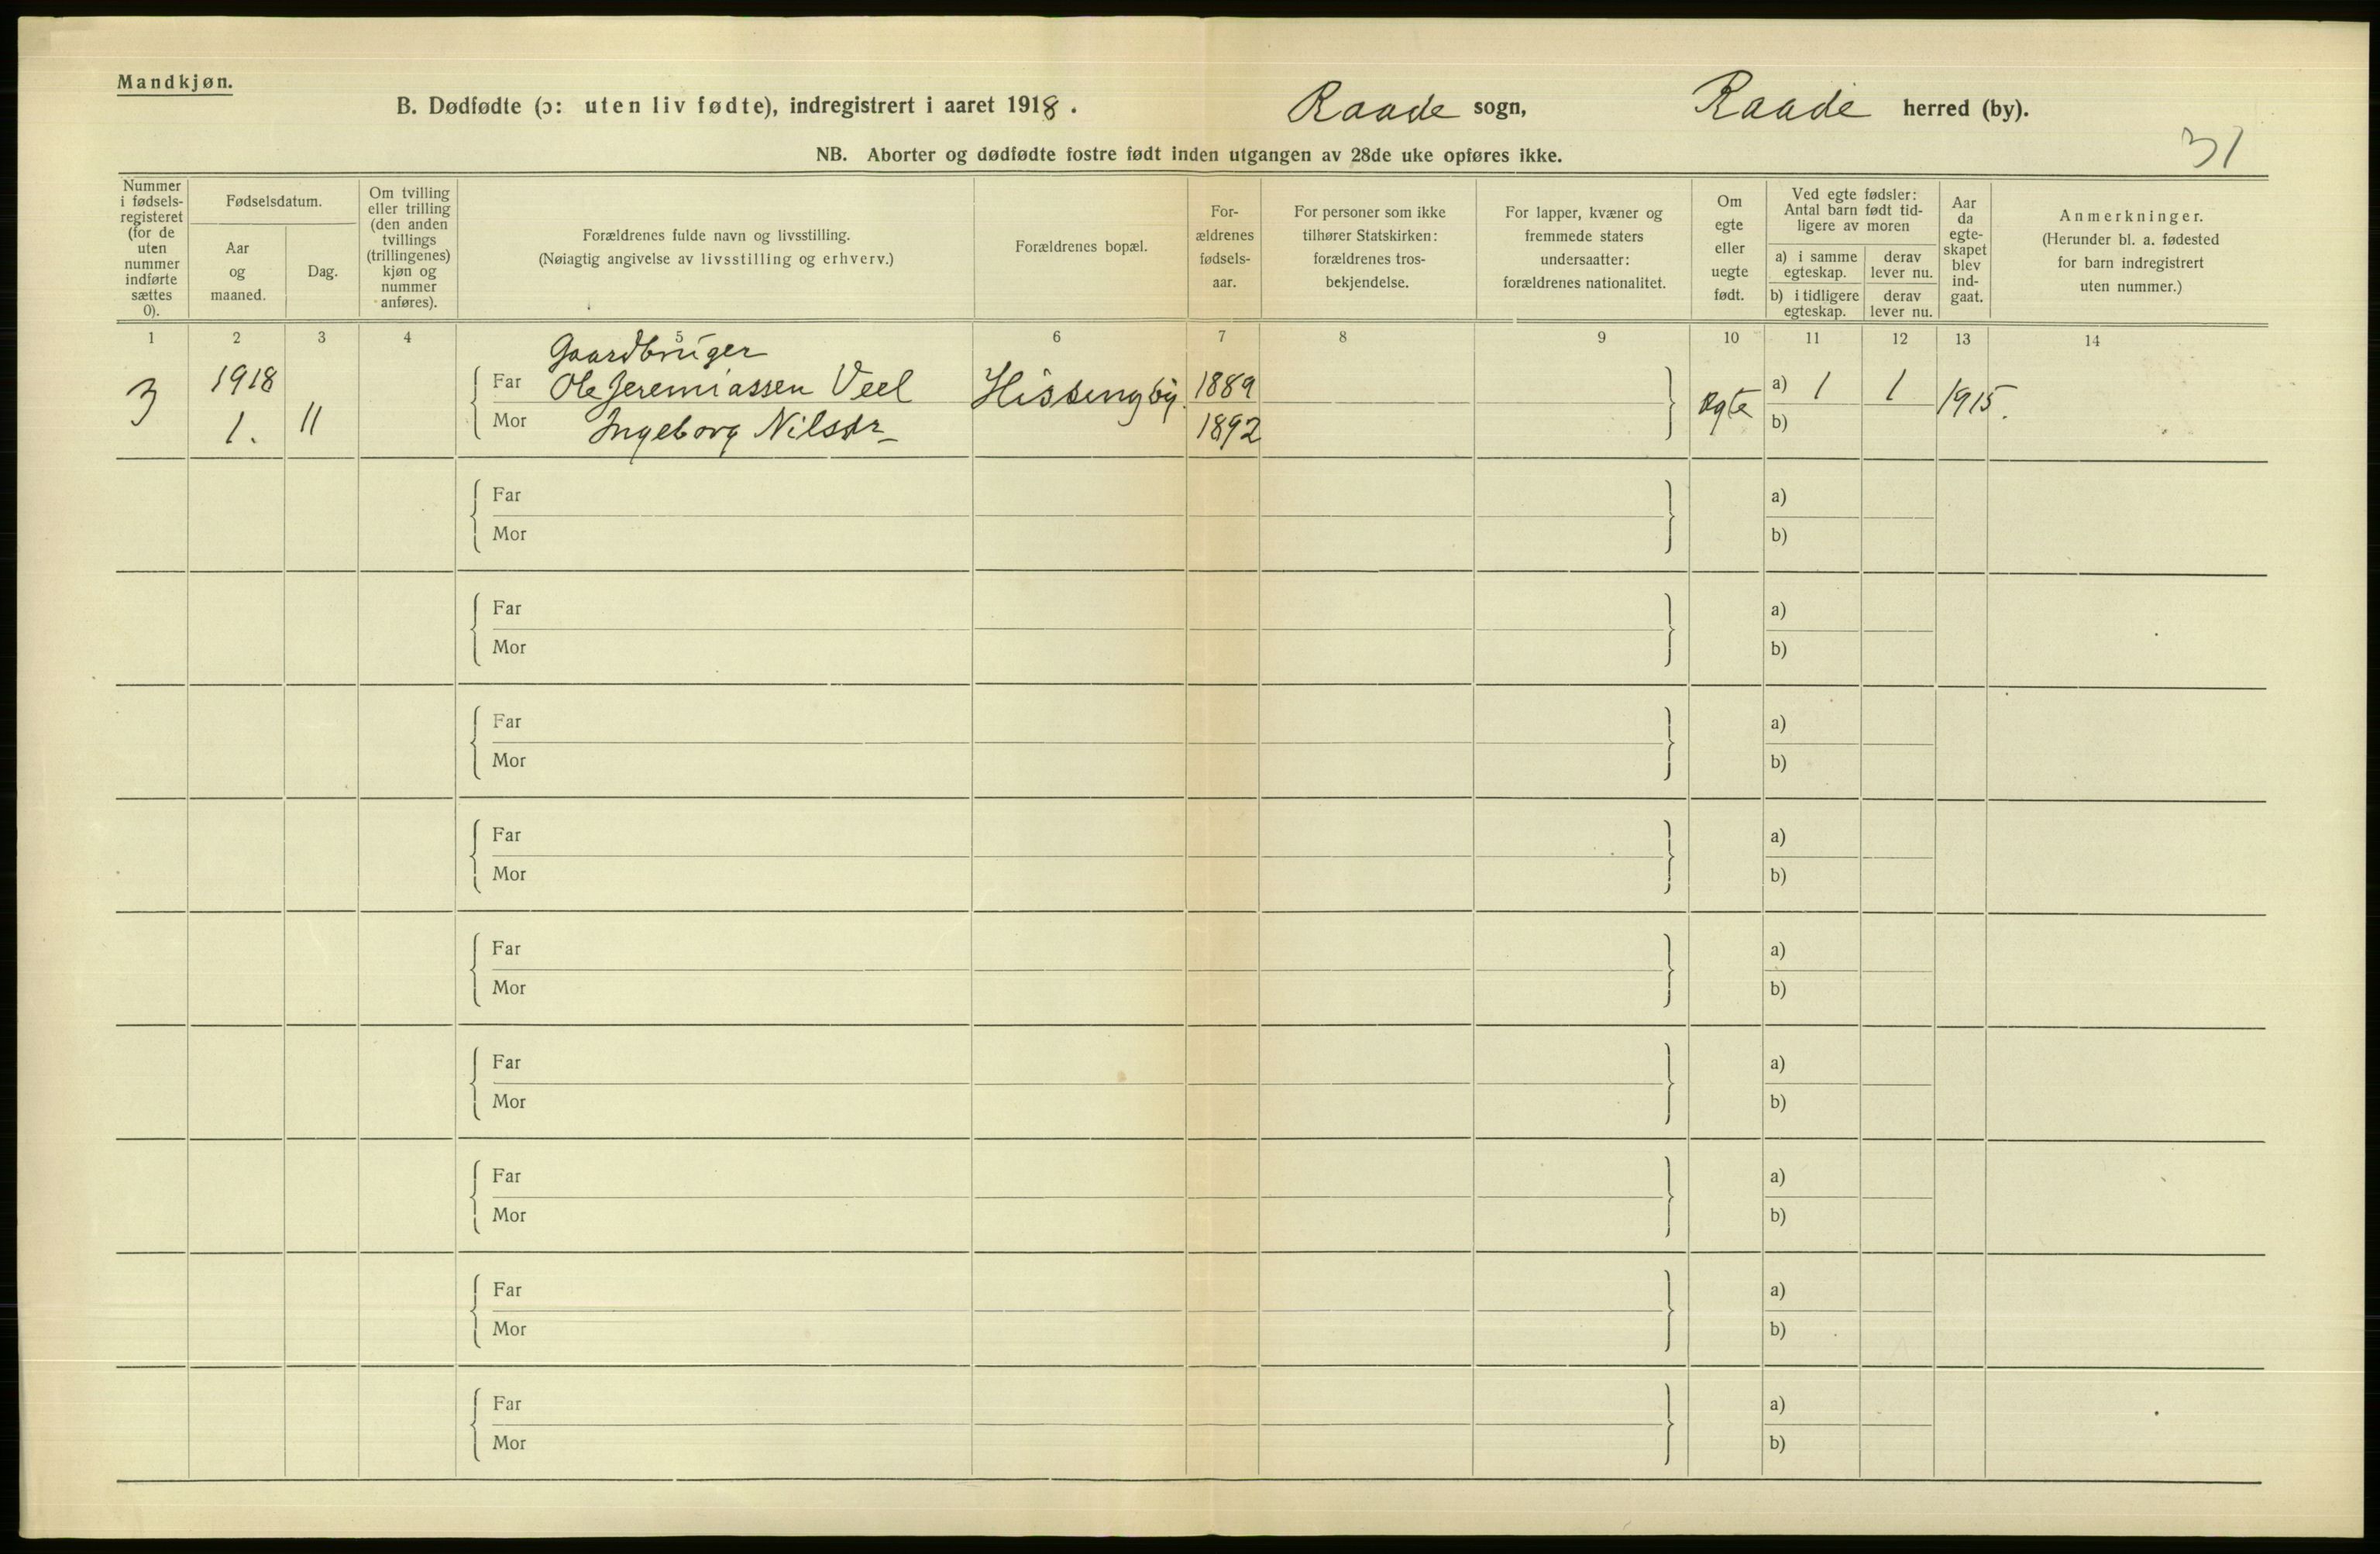 Mandkjøn.
B. Dødfødte (ɔ: uten liv fødte), indregistrert i aaret 1918.
Raade sogn,
Raade herred (by).
31
NB. Aborter og dødfødte fostre født inden utgangen av 28de uke opføres ikke.
Nummer
i fødsels-
registeret
(for de
uten
nummer
indførte
sættes
0).
Fødselsdatum.
Aar
og
maaned.
Dag.
Om tvilling
eller trilling
(den anden
tvillings
(trillingenes)
kjøn og
nummer
anføres).
Forældrenes fulde navn og livsstilling.
(Nøiagtig angivelse av livsstilling og erhverv.)
Forældrenes bopæl.
For-
ældrenes
fødsels-
aar.
For personer som ikke
tilhører Statskirken:
forældrenes tros-
bekjendelse.
For lapper, kvæner og
fremmede staters
undersaatter:
forældrenes nationalitet.
Om
egte
eller
uegte
født.
Ved egte fødsler:
Antal barn født tid-
ligere av moren
a) i samme
egteskap.
derav
lever nu.
b) i tidligere
egteskap.
derav
lever nu.
Aar
da
egte-
skapet
blev
ind-
gaat.
Anmerkninger.
(Herunder bl. a. fødested
for barn indregistrert
uten nummer.)
1 2 3 4 5 6 7 8 9 10 11 12 13 14
Gaardbruger
3 1918 Far Ole Jeremiassen Veel Hissingby. 1889 egte a) 1 1 1915.
1. 11 Mor Ingeborg Nilsdr 1892 b)
Far a)
Mor b)
Far a)
Mor b)
Far a)
Mor b)
Far a)
Mor b)
Far a)
Mor b)
Far a)
Mor b)
Far a)
Mor b)
Far a)
Mor b)
Far a)
Mor b)